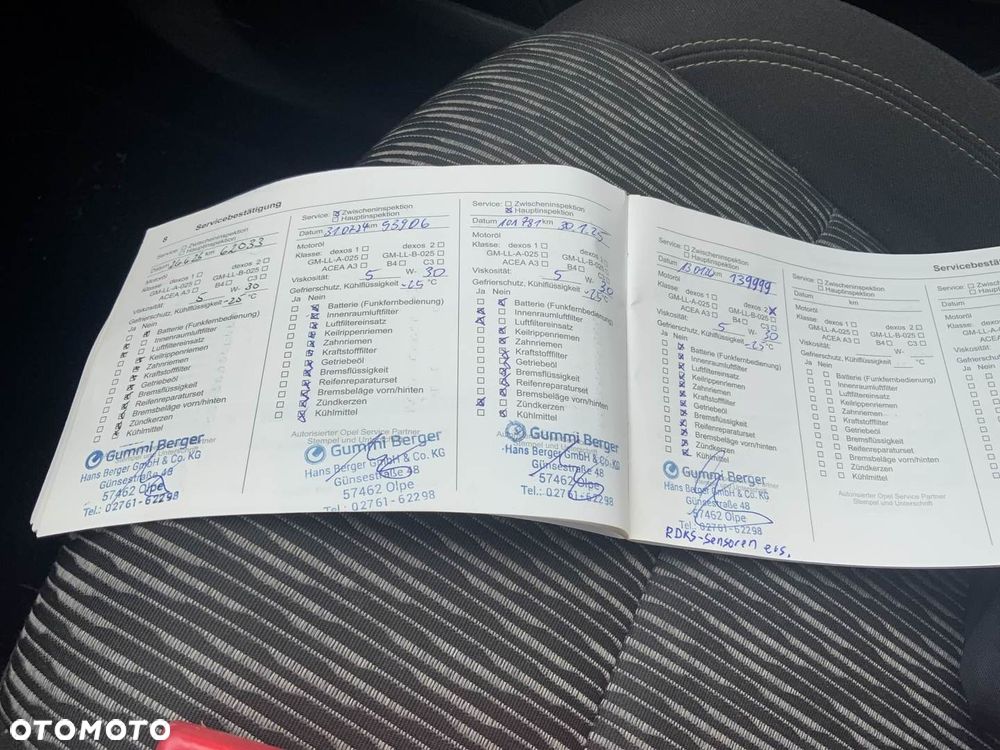 8 Servicebestätigung
Service: Zwischeninspektion
Hauptinspektion
Datum km 62033
Motoröl
Klasse: dexos 1 dexos 2
GM-LL-A-025 GM-LL-B-025
ACEA A3 B4 C3
Viskosität: 5 W- 30
Gefrierschutz, Kühlflüssigkeit -25 °C
Ja Nein
Batterie (Funkfernbedienung)
Innenraumluftfilter
Luftfiltereinsatz
Keilrippenriemen
Zahnriemen
Kraftstofffilter
Getriebeöl
Bremsflüssigkeit
Reifenreparaturset
Bremsbeläge vorn/hinten
Zündkerzen
Kühlmittel
Gummi Berger
Hans Berger GmbH & Co. KG
Günsestraße 48
57462 Olpe
Tel.: 02761-62298
Service: Zwischeninspektion
Hauptinspektion
Datum 31.07.24 km 93906
Motoröl
Klasse: dexos 1 dexos 2
GM-LL-A-025 GM-LL-B-025
ACEA A3 B4 C3
Viskosität: 5 W- 30
Gefrierschutz, Kühlflüssigkeit -25 °C
Ja Nein
Batterie (Funkfernbedienung)
Innenraumluftfilter
Luftfiltereinsatz
Keilrippenriemen
Zahnriemen
Kraftstofffilter
Getriebeöl
Bremsflüssigkeit
Reifenreparaturset
Bremsbeläge vorn/hinten
Zündkerzen
Kühlmittel
Autorisierter Opel Service Partner
Stempel und Unterschrift
Gummi Berger
Hans Berger GmbH & Co. KG
Günsestraße 48
57462 Olpe
Tel.: 02761-62298
Service: Zwischeninspektion
Hauptinspektion
Datum 101781 km 30.1.25
Motoröl
Klasse: dexos 1 dexos 2
GM-LL-A-025 GM-LL-B-025
ACEA A3 B4 C3
Viskosität: 5 W- 30
Gefrierschutz, Kühlflüssigkeit -25 °C
Ja Nein
Batterie (Funkfernbedienung)
Innenraumluftfilter
Luftfiltereinsatz
Keilrippenriemen
Zahnriemen
Kraftstofffilter
Getriebeöl
Bremsflüssigkeit
Reifenreparaturset
Bremsbeläge vorn/hinten
Zündkerzen
Kühlmittel
Gummi Berger
Hans Berger GmbH & Co. KG
Günsestraße 48
57462 Olpe
Tel.: 02761-62298
Service: Zwischeninspektion
Hauptinspektion
Datum km 139999
Motoröl
Klasse: dexos 1 dexos 2
GM-LL-A-025 GM-LL-B-025
ACEA A3 B4 C3
Viskosität: 5 W- 30
Gefrierschutz, Kühlflüssigkeit -25 °C
Ja Nein
Batterie (Funkfernbedienung)
Innenraumluftfilter
Luftfiltereinsatz
Keilrippenriemen
Zahnriemen
Kraftstofffilter
Getriebeöl
Bremsflüssigkeit
Reifenreparaturset
Bremsbeläge vorn/hinten
Zündkerzen
Kühlmittel
Gummi Berger
Hans Berger GmbH & Co. KG
Günsestraße 48
57462 Olpe
Tel.: 02761-62298
RDKS-Sensoren ers.
Servicebestä
Service: Zwischeninspektion
Hauptinspektion
Datum km
Motoröl
Klasse: dexos 1 dexos 2
GM-LL-A-025 GM-LL-B-025
ACEA A3 B4 C3
Viskosität: W-
Gefrierschutz, Kühlflüssigkeit °C
Ja Nein
Batterie (Funkfernbedienung)
Innenraumluftfilter
Luftfiltereinsatz
Keilrippenriemen
Zahnriemen
Kraftstofffilter
Getriebeöl
Bremsflüssigkeit
Reifenreparaturset
Bremsbeläge vorn/hinten
Zündkerzen
Kühlmittel
Autorisierter Opel Service Partner
Stempel und Unterschrift
Service:
Datum
Motoröl
Klasse:
Viskosität:
Gefrierschutz,
Ja Nein
OTOMOTO